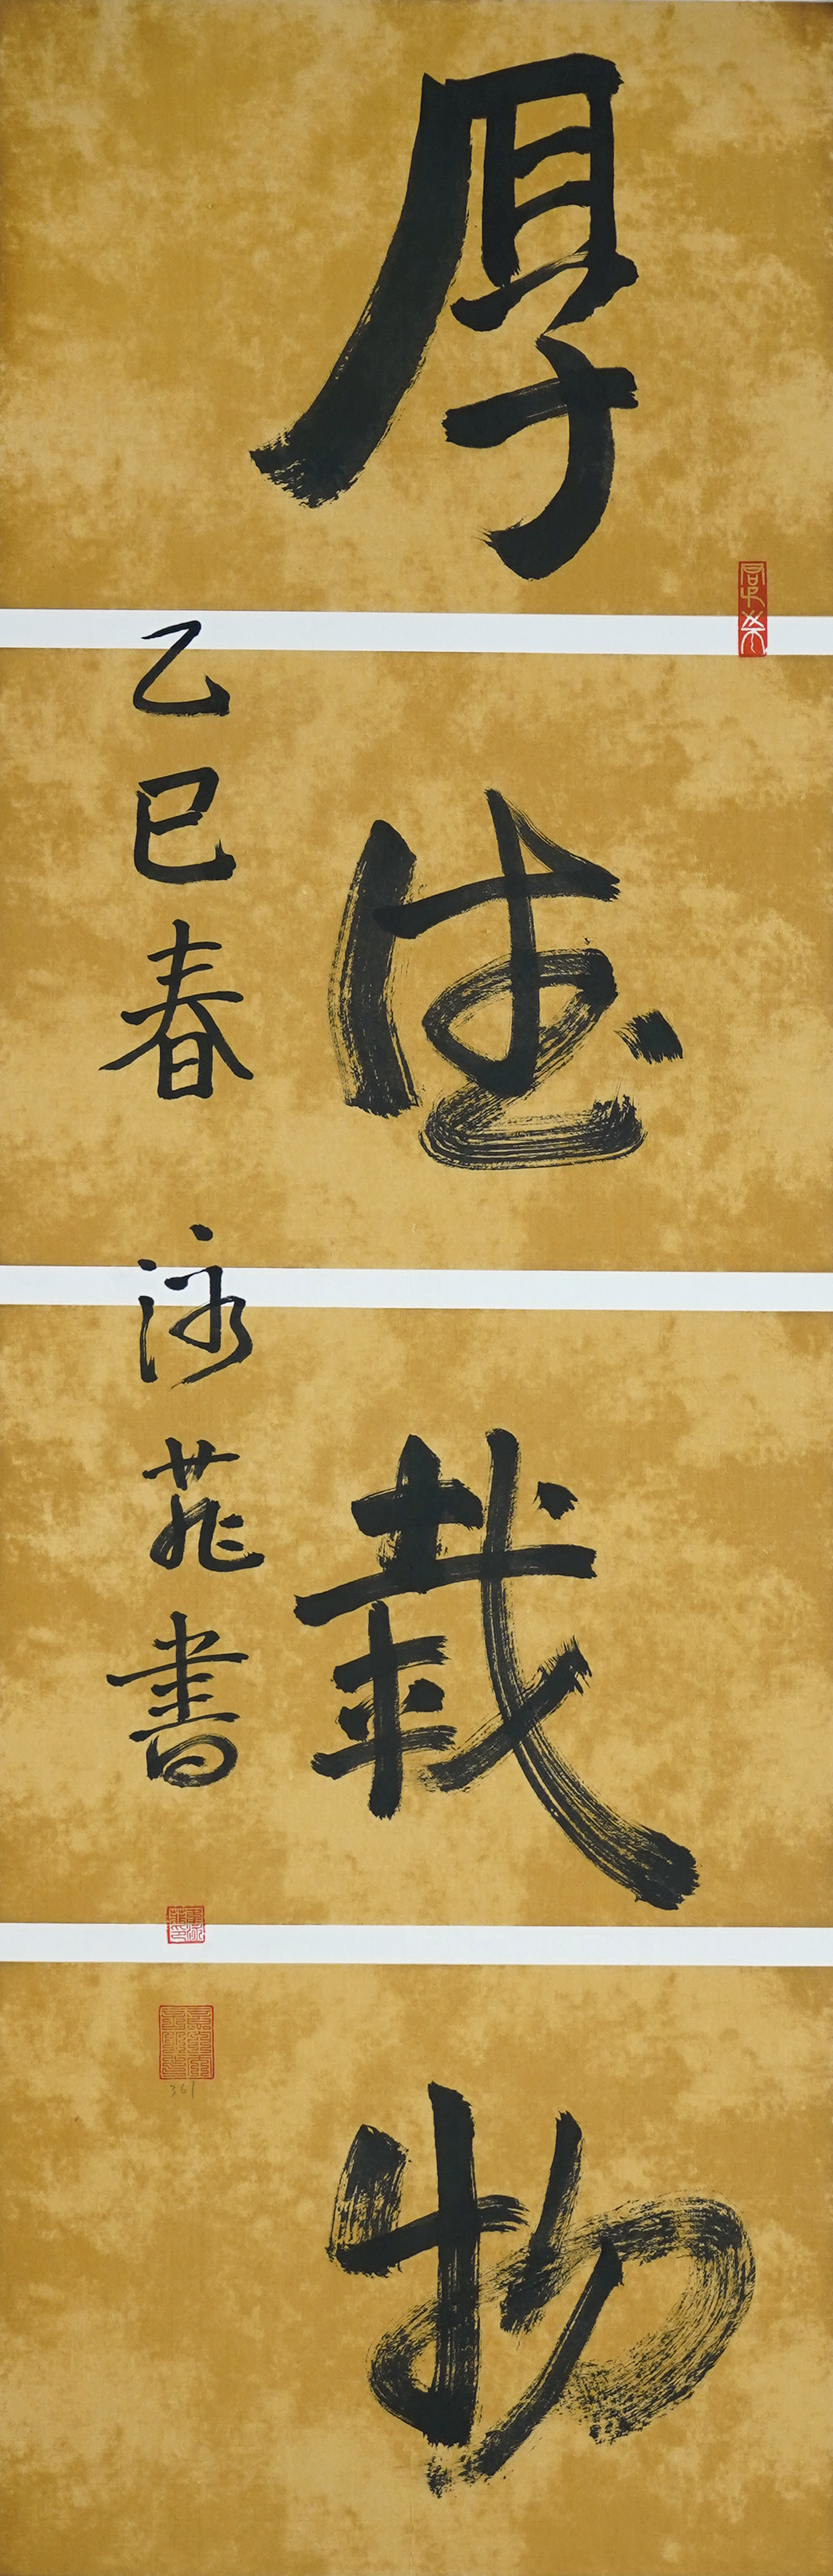 厚德載物
乙巳春 泳菲書
361